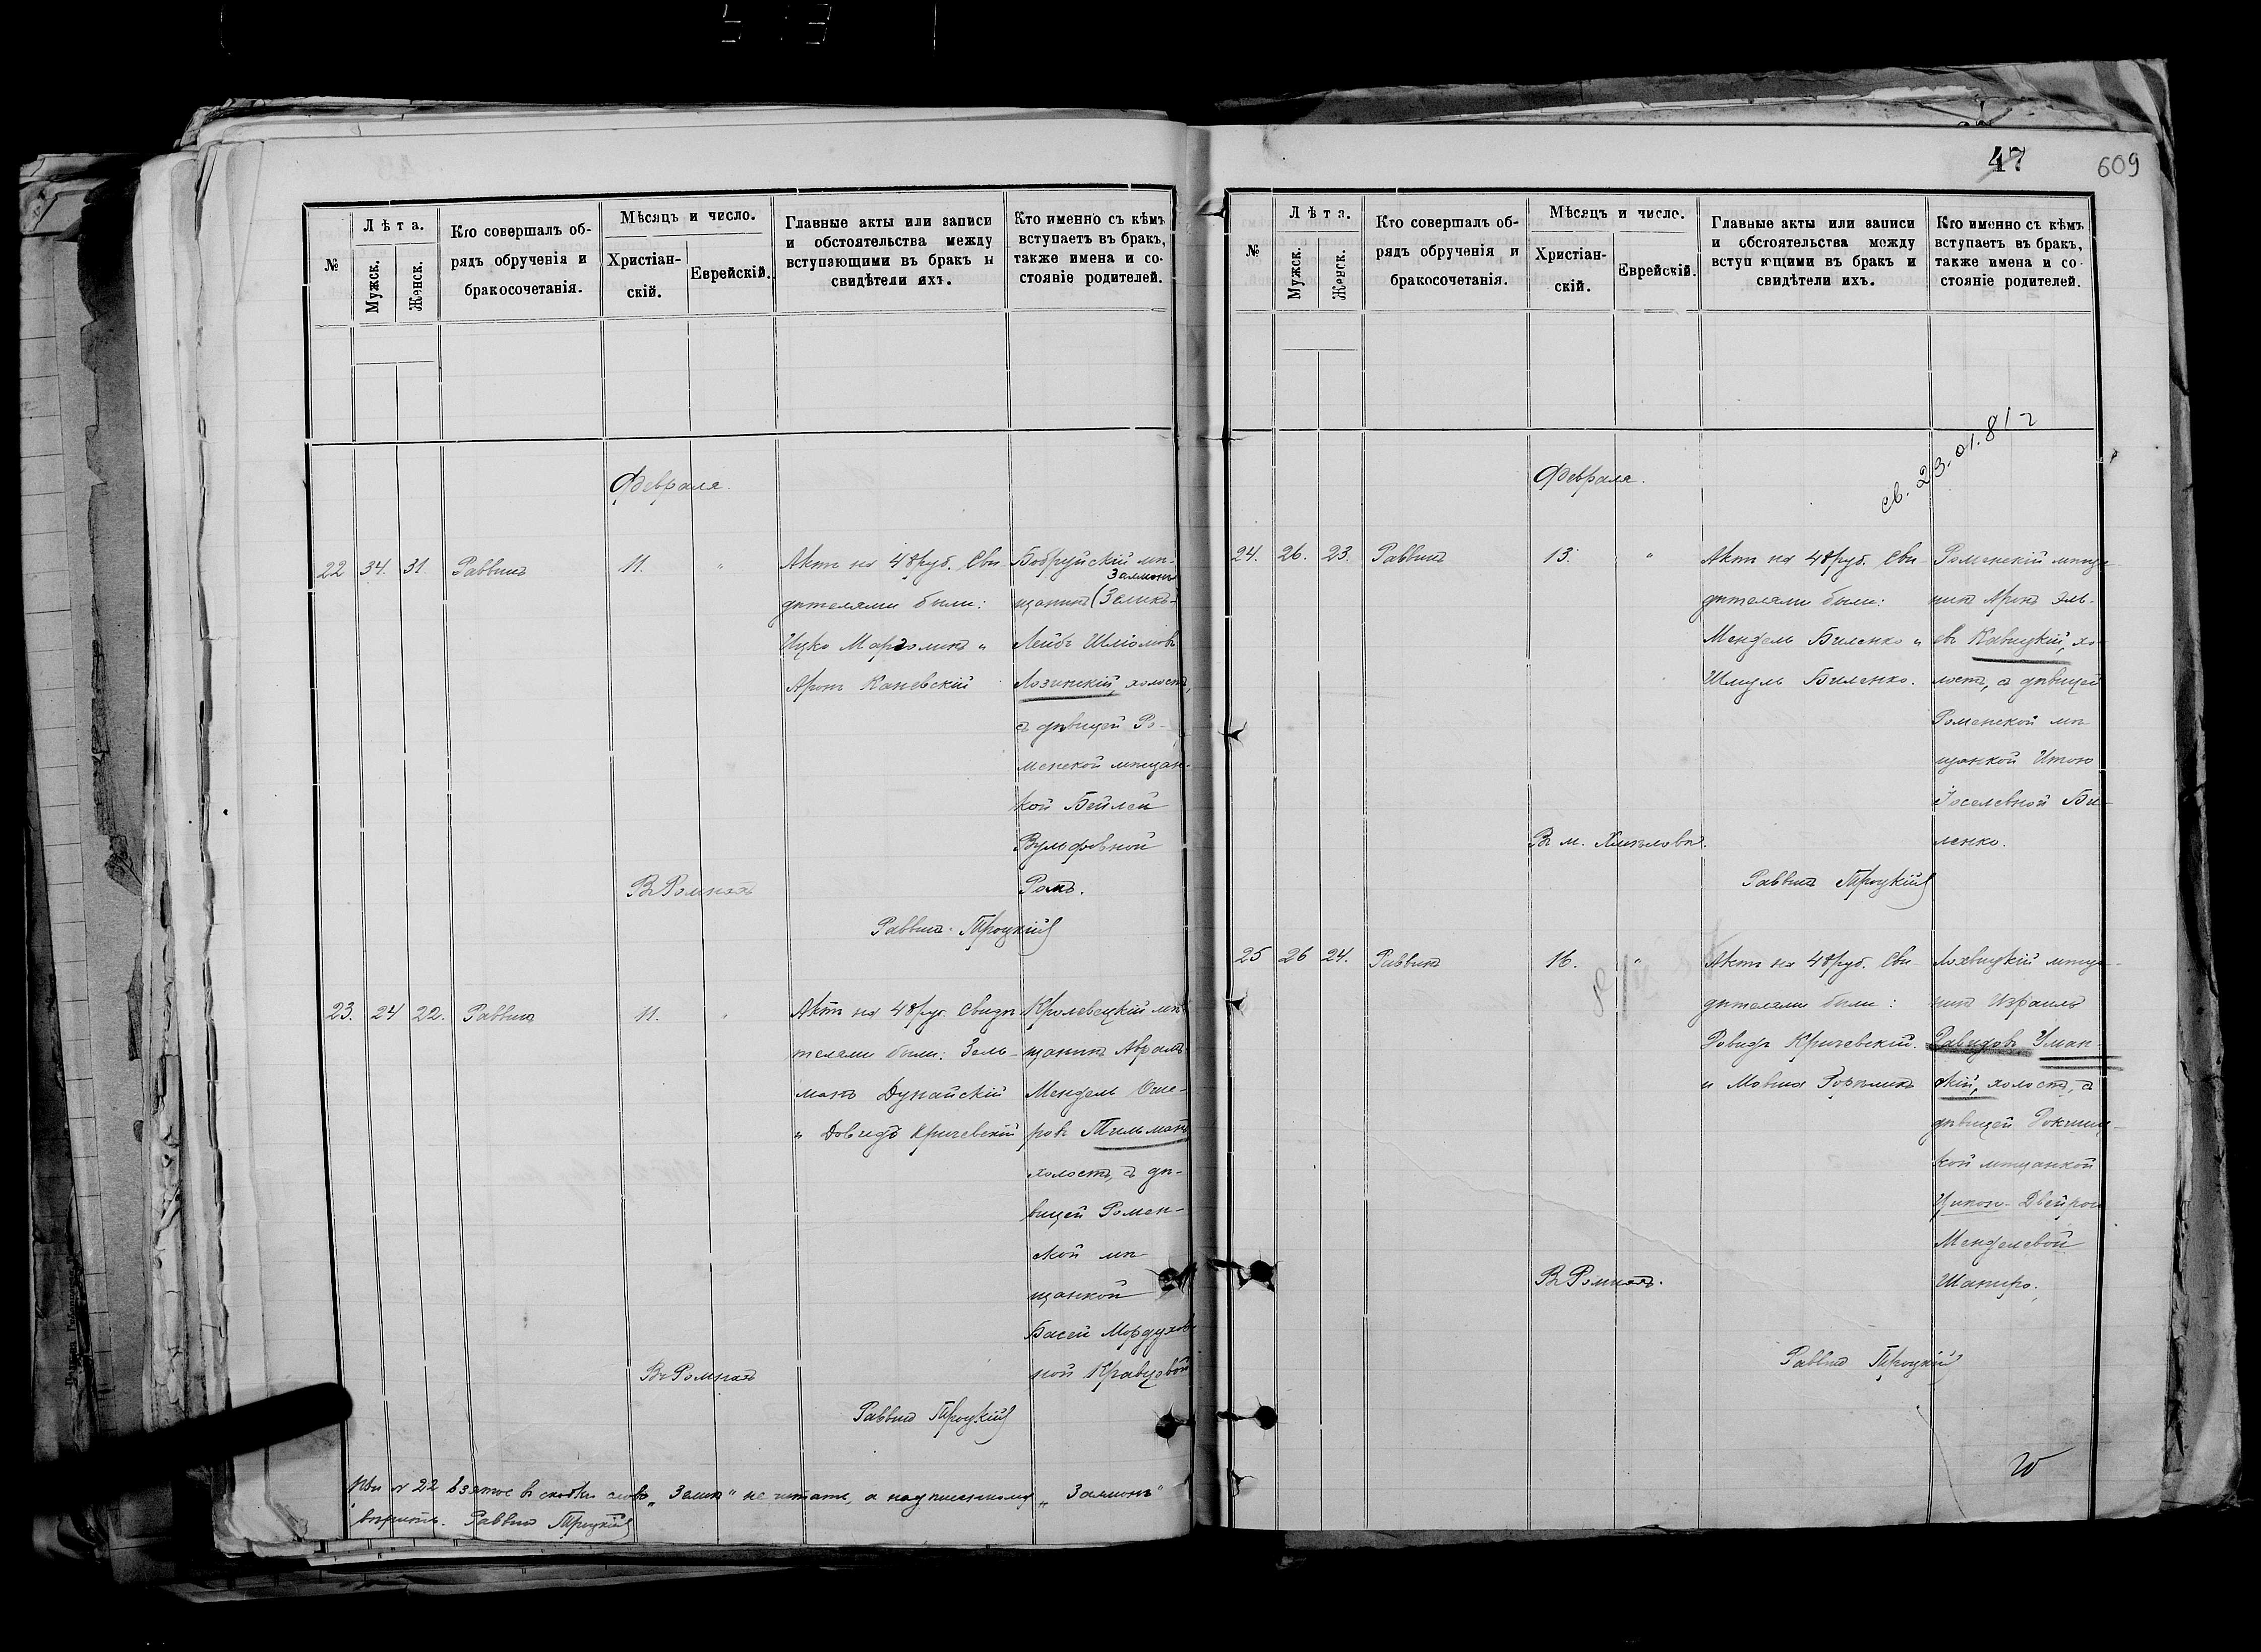 №
Лѣта.
Мужск.
Женск.
Кто совершалъ об-
рядъ обрученія и
бракосочетанія.
Мѣсяцъ и число.
Христіан-
скій.
Еврейскій.
Главные акты или записи
и обстоятельства между
вступающими въ бракъ и
свидѣтели ихъ.
Кто именно съ кѣмъ
вступаетъ въ бракъ,
также имена и со-
стояніе родителей.
Февраля.
22 34. 31. Раввинъ 11. "
Актъ на 48 руб. Сви-
дѣтелями были:
Ицко Марголинъ и
Аронъ Каневскій
Бобруйскій мѣ-
Залманъ
щанинъ (Зеликъ)-
Лейбъ Шліомовъ
Лозинскій, холостъ,
съ дѣвицей Ро-
менской мѣщан-
кой Бейлей
Вульфовной
Ромъ.
Въ Ромнахъ
Раввинъ Троцкій
23. 24 22. Раввинъ 11. "
Актъ на 48 руб. Свидѣ
телями были: Зель-
манъ Дунайскій
и Довидъ Кричевскій
Кролевецкій мѣ
щанинъ Абрамъ-
Мендель Оше-
ровъ Тильманъ
холостъ, съ дѣ-
вицей Ромен-
ской мѣ
щанкой
Басей Мордухов
ной Кравцовой
Въ Ромнахъ
Раввинъ Троцкій
При № 22 взятое въ скобки слово "Зелик" не читать, а надписанному "Залманъ"
вѣрить. Раввинъ Троцкій
47
609
№
Лѣта.
Мужск.
Женск.
Кто совершалъ об-
рядъ обрученія и
бракосочетанія.
Мѣсяцъ и число.
Христіан-
скій.
Еврейскій.
Главные акты или записи
и обстоятельства между
вступ ющими въ бракъ и
свидѣтели ихъ.
Кто именно съ кѣмъ
вступаетъ въ бракъ,
также имена и со-
стояніе родителей.
св. 23.01.81 г
Февраля.
24. 26. 23. Раввинъ 13. "
Актъ на 48 руб. Сви-
дѣтелями были:
Мендель Биленко и
Шмуль Биленко.
Роменскій мѣща-
нинъ Аронъ Эль-
евъ Кавицкій, хо
лостъ, съ дѣвицей
Роменской мѣ
щанкой Итою
Іоселевной Би-
ленко.
Въ м. Хмѣловѣ.
Раввинъ Троцкій
25 26 24. Раввинъ 16. "
Актъ на 48 руб. Сви-
дѣтелями были:
Довидъ Кричевскій.
и Мовша
Лохвицкій мѣща-
нинъ Израиль
Давидовъ Уман-
скій, холостъ, съ
дѣвицей
кой мѣщанкой
Двейрой
Менделевой
Шапиро.
Въ Ромнахъ.
Раввинъ Троцкій